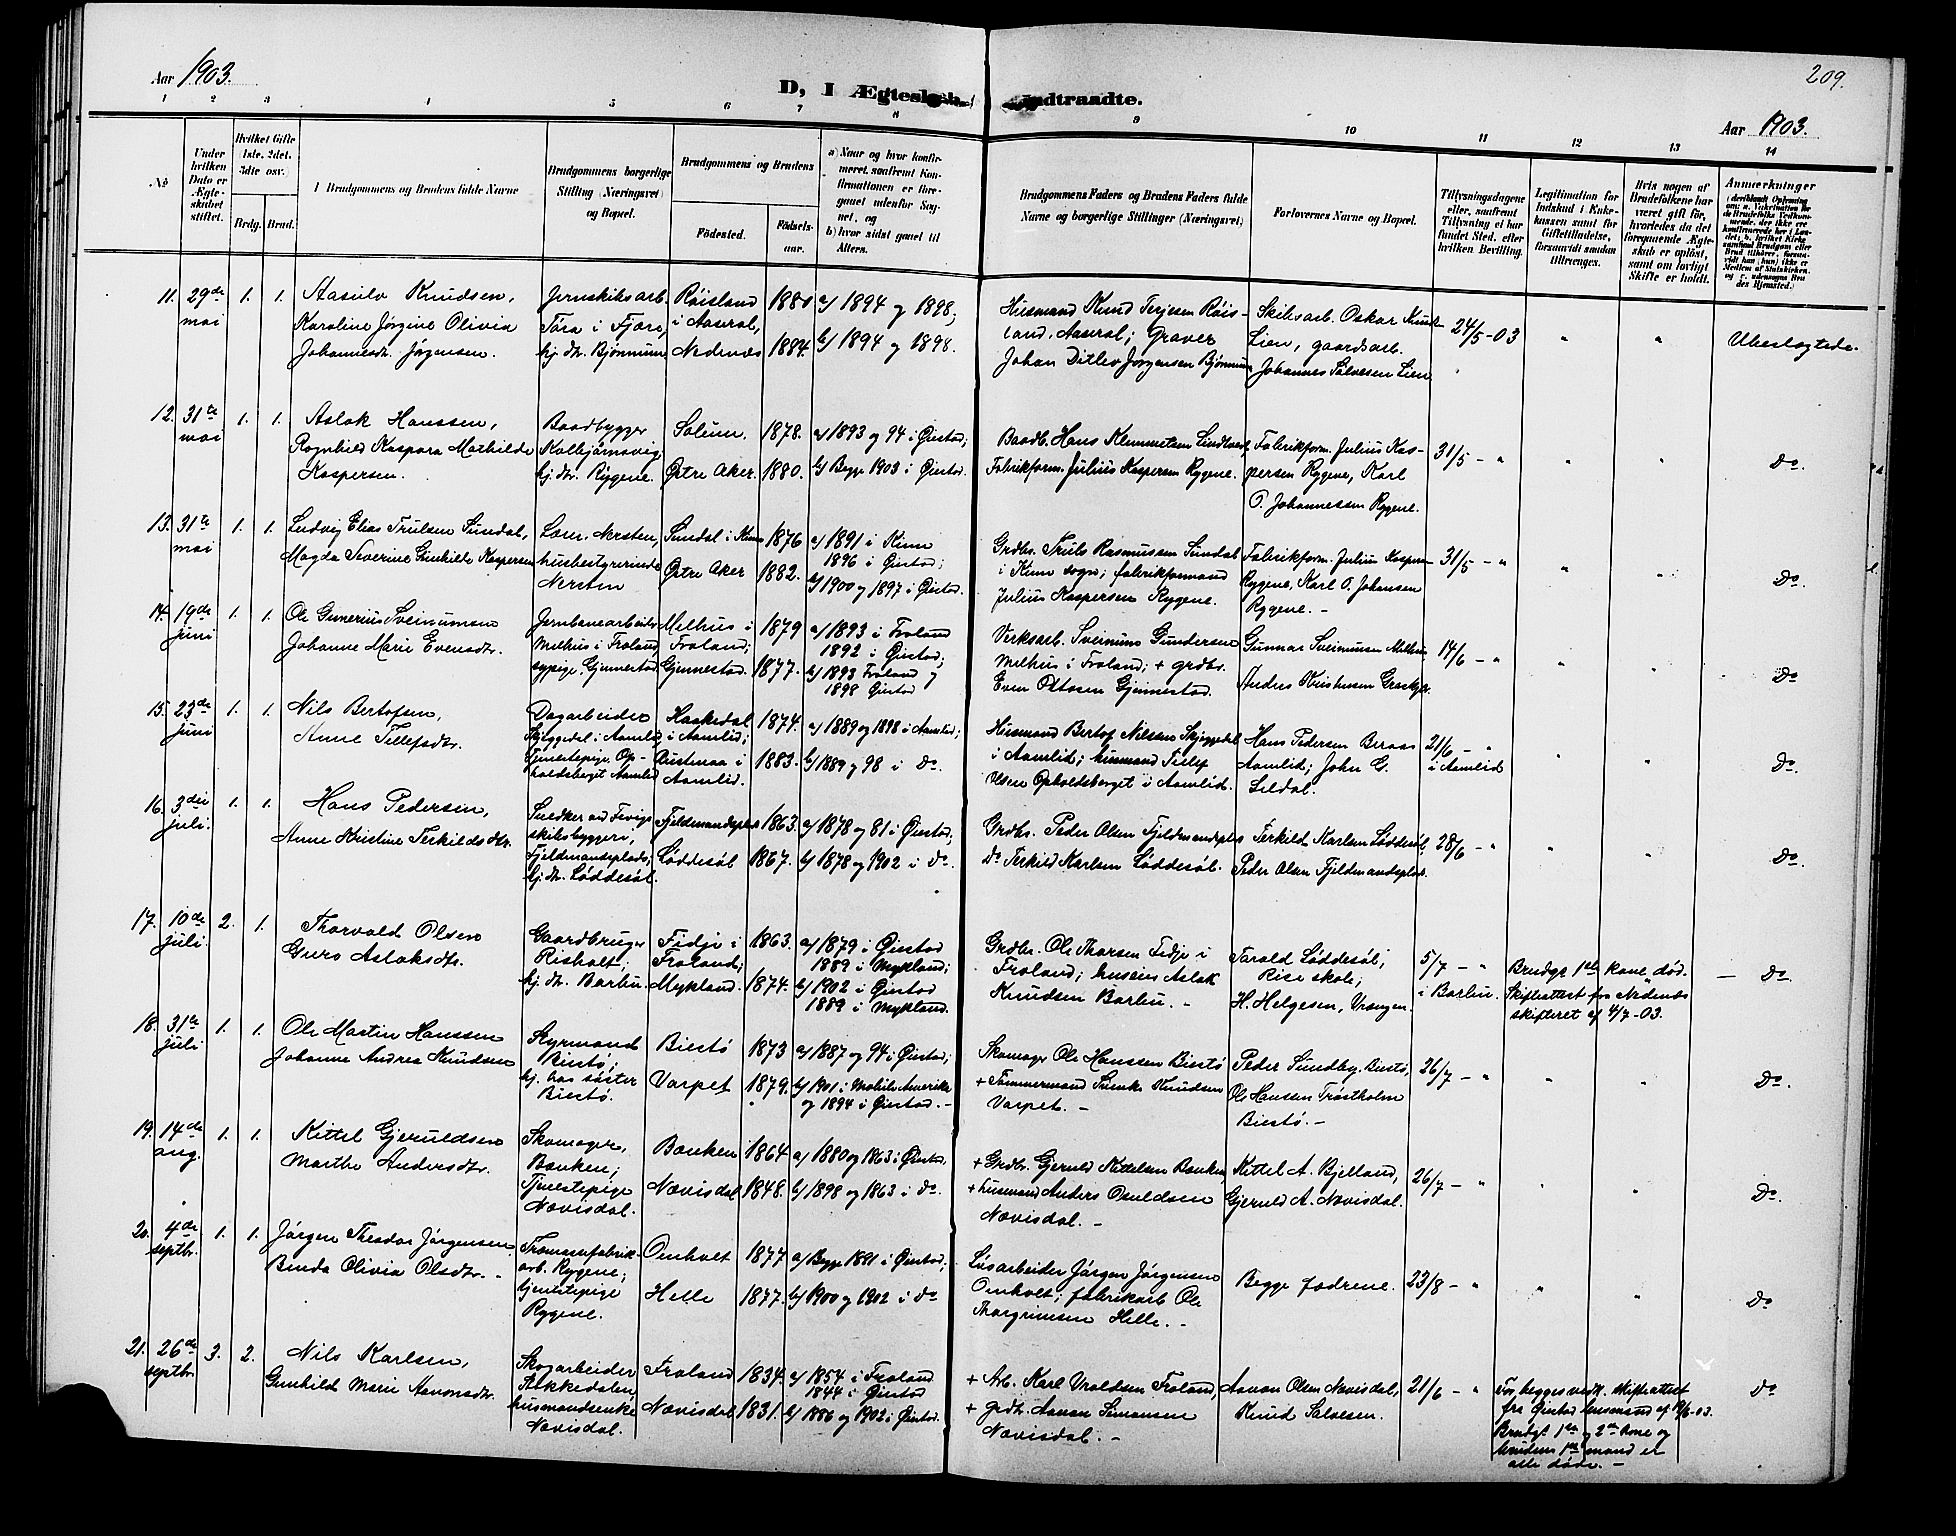 Aar 1903.
209.
D, 1 Ægteskab indtraadte.
Aar 1903.
1 2 3 4 5 6 7 8 9 10 11 12 13 14
No
Under hvilken Dato er Ægteskabet stiftet.
Hvilket Gifte 1ste. 2det. 3dte osv.
Brdg. Brud.
Brudgommens og Brudens fulde Navne
Brudgommens borgerlige Stilling (Næringsvei) og Bopæl.
Brudgommens og Brudens
Fødested.
Fødselsaar.
a) Naar og hvor konfirmeret, saafremt Konfirmationen er foregaaet udenfor Sognet, og
b) hvor sidst gaaet til Alters.
Brudgommens Faders og Brudens Faders fulde Navne og borgerlige Stillinger (Næringsvei)
Forlovernes Navne og Bopæl.
Tillysningsdagene eller, saafremt Tillysning ei har fundet Sted, efter hvilken Bevilling.
Legitimation for Indskud i Enkekassen samt for Giftetilladelse, forsaavidt saadan tiltrænges.
Hvis nogen af Brudefolkene har været gift før, hvorledes da det foregaaende Ægteskab er opløst, samt om lovligt Skifte er holdt.
Anmærkninger
11. 29de mai 1. 1.
Aasulv Knudsen,
Karoline Jørgine Olivia
Johannesdr. Jørgensen.
Jernskibsarb.
Tara i Fjære,
hj. dr. Bjønnum
Røisland
i Aaseral,
Nedenæs
1880
1884.
a) 1894 og 1898;
b) 1894 og 1898.
Husmand Knud Terjesen Røisland, Aaseral; Graver
Johan Ditlev Jørgensen Bjønnum
Skibsarb. Oskar Knudsen
Lien, gaardsarb.
Johannes Salvesen Lien
24/5-03
"
"
Ubeslægtede.
12. 31te mai 1. 1.
Aslak Hanssen,
Ragnhild Kaspara Mathilde
Kaspersen.
Baadbygger
Kolbjørnsvig
hj. dr. Rygene.
Solum.
Østre Aker.
1878.
1880.
a) 1893 og 94 i Øiestad;
b) Begge 1903 i Øiestad.
Baadb. Hans Klemmetsen Lindtveit
Fabrikform. Julius Kaspersen Rygene.
Fabrikform. Julius Kaspersen Rygene, Karl
O. Johannessen Rygene.
31/5 - "
"
"
Do.
13. 31te mai 1. 1.
Ludvig Elias Trulsen Sundal,
Magda Severine Gunhilde Kaspersen
Læn. Nersten,
husbestyrerinde
Nersten
Sundal i Kinn
Østre Aker
1876
1882.
a) 1891 i Kinn
1896 i Øiestad;
b) 1900 og 1897 i Øiestad.
Grdbr. Truls Rasmussen Sundal
i Kinn sogn; fabrikformand
Julius Kaspersen Rygene.
Fabrikform. Julius Kaspersen
Rygene, Karl O. Johansen
Rygene. -
31/5 - "
"
"
Do.
14. 19de juni 1. 1.
Ole Gunerius Sveinumsen
Johanne Marie Evensdtr.
Jernbanearbeider
Melhus i Froland
sypige, Gjennestad
Melhus i
Froland;
Gjennestad.
1879
1877.
a) 1893 i Froland
1892 i Øiestad;
b) 1893 Froland og
1898 Øiestad
Verksarb. Sveinung Gundersen
Melhus i Froland; + grdbr.
Even Ottosen Gjennestad.
Gunnar Sveinumsen Melhus
Anders Kristensen
14/6 - "
"
"
Do
15. 23de juni 1. 1.
Nils Bertofsen,
Anne Tellefsdtr.
Dagarbeider
Skjeggedal i Aamlid
Tjenestepige, Opholdsberget Aamlid
Haskedal
i Aamlid;
Austenaa i
Aamlid.
1874.
1883.
a) 1889 og 1898 i Aamlid;
b) 1889 og 98 i do.
Husmand Bertof Nilssen Skjeggedal
i Aamlid; husmand Tellef
Olsen Opholdsberget i Aamlid.
Hans Pedersen Beraas
Aamlid; John G.
Seldal.
21/6 - "
i Aamlid
"
"
Do.
16. 3die juli. 1. 1.
Hans Pedersen,
Anne Kristine Terkildsdtr.
Snedker ved Fevigs
skibsbyggeri,
Fjeldmandsplads,
hj. dr. Løddesøl.
Fjeldmandsplads
Løddesøl
1863.
1867.
a) 1878 og 81 i Øiestad;
b) 1878 og 1902 i do.
Grdbr. Peder Olsen Fjeldmandsplas
do Terkild Karlsen Løddesøl.
Terkild Karlsen Løddesøl,
Peder Olsen Fjeldmandsplads.
28/6 - "
"
"
Do.
17. 10de juli. 2. 1.
Thorvald Olsen
Guro Aslaksdtr.
Gaardbruger
Risholt;
hj. dr. Barbu.
Fidje i
Froland;
Mykland.
1863.
1874.
a) 1879 i Øiestad
1889 i Mykland;
b) 1902 i Øiestad
1889 i Mykland.
Grdbr. Ole Tharsen Fidje i
Froland; huseier Aslak
Knudsen Barbu. -
Tarald Løddesøl;
Rise skole;
H. Helgesen, Vrangen
5/7 - "
i Barbu.
Brudgs 1ste kone død.
Skifteattest fra Nedenæs
skifteret af 4/7-03.
- Do.
18. 31te juli 1. 1.
Ole Martin Hanssen
Johanne Andrea Knudsen
Styrmand
Biestø;
hj. hos søster
Biestø.
Biestø
Varpet
1873
1879.
a) 1887 og 94 i Øiestad;
b) 1901 i Mobile Amerika
og 1894 i Øiestad. -
Skomager Ole Hanssen Biestø
+ Tømmermand Knudsen
Varpet. -
Peder Sundby, Biestø,
Ole Hansen Trøstholm
Biestø. -
26/7 - "
"
"
Do.
19. 14de aug. 1. 1.
Kittel Gjeruldsen
Marthe Andersdtr.
Skomager,
Banken;
Tjenestepige
Nævisdal.
Banken
Nævisdal
1864
1848.
a) 1880 og 1863 i Øiestad,
b) 1898 og 1863 i do.
+ Grdbr. Gjeruld Kittelsen Banken,
+ husmand Anders Osuldsen
Nævisdal. -
Kittel A. Bjelland,
Gjeruld A. Nævisdal.
26/7 - "
"
"
Do.
20. 4de septbr. 1. 1.
Jørgen Theodor Jørgensen
Benda Olivia Olsdtr. -
Træmassefabrikarb. Rygene;
tjenestepige
Rygene.
Omholt
Helle
1877
1877.
a) Begge 1891 i Øiestad;
b) 1900 og 1902 i do
Løsarbeider Jørgen Jørgensen
Omholt; fabrikarb. Ole
Thorgrimsen Helle. -
Begge fædrene.
23/8 - "
"
"
Do
21. 26de septbr. 3. 2.
Nils Karlsen,
Gunhild Marie Aanonsdtr.
Skogarbeider
Stokkedalen,
husmandsenke
Nævisdal.
Froland
Nævisdal
1834.
1831.
a) 1854 i Froland
1844 i Øiestad
b) 1886 og 1902 i Øiestad.
+ Arb. Karl Vraldsen Froland,
+ grdbr. Aanon Simonsen
Nævisdal. -
Aanon Olsen Nævisdal,
Knud Salvesen.
21/6 - "
For begges vedk. skifteattest
fra Øiestad lensmand af 19/6-03.
Brudgs 1ste og 2den kone og
brudens 1ste mand er
alle døde. -
Do